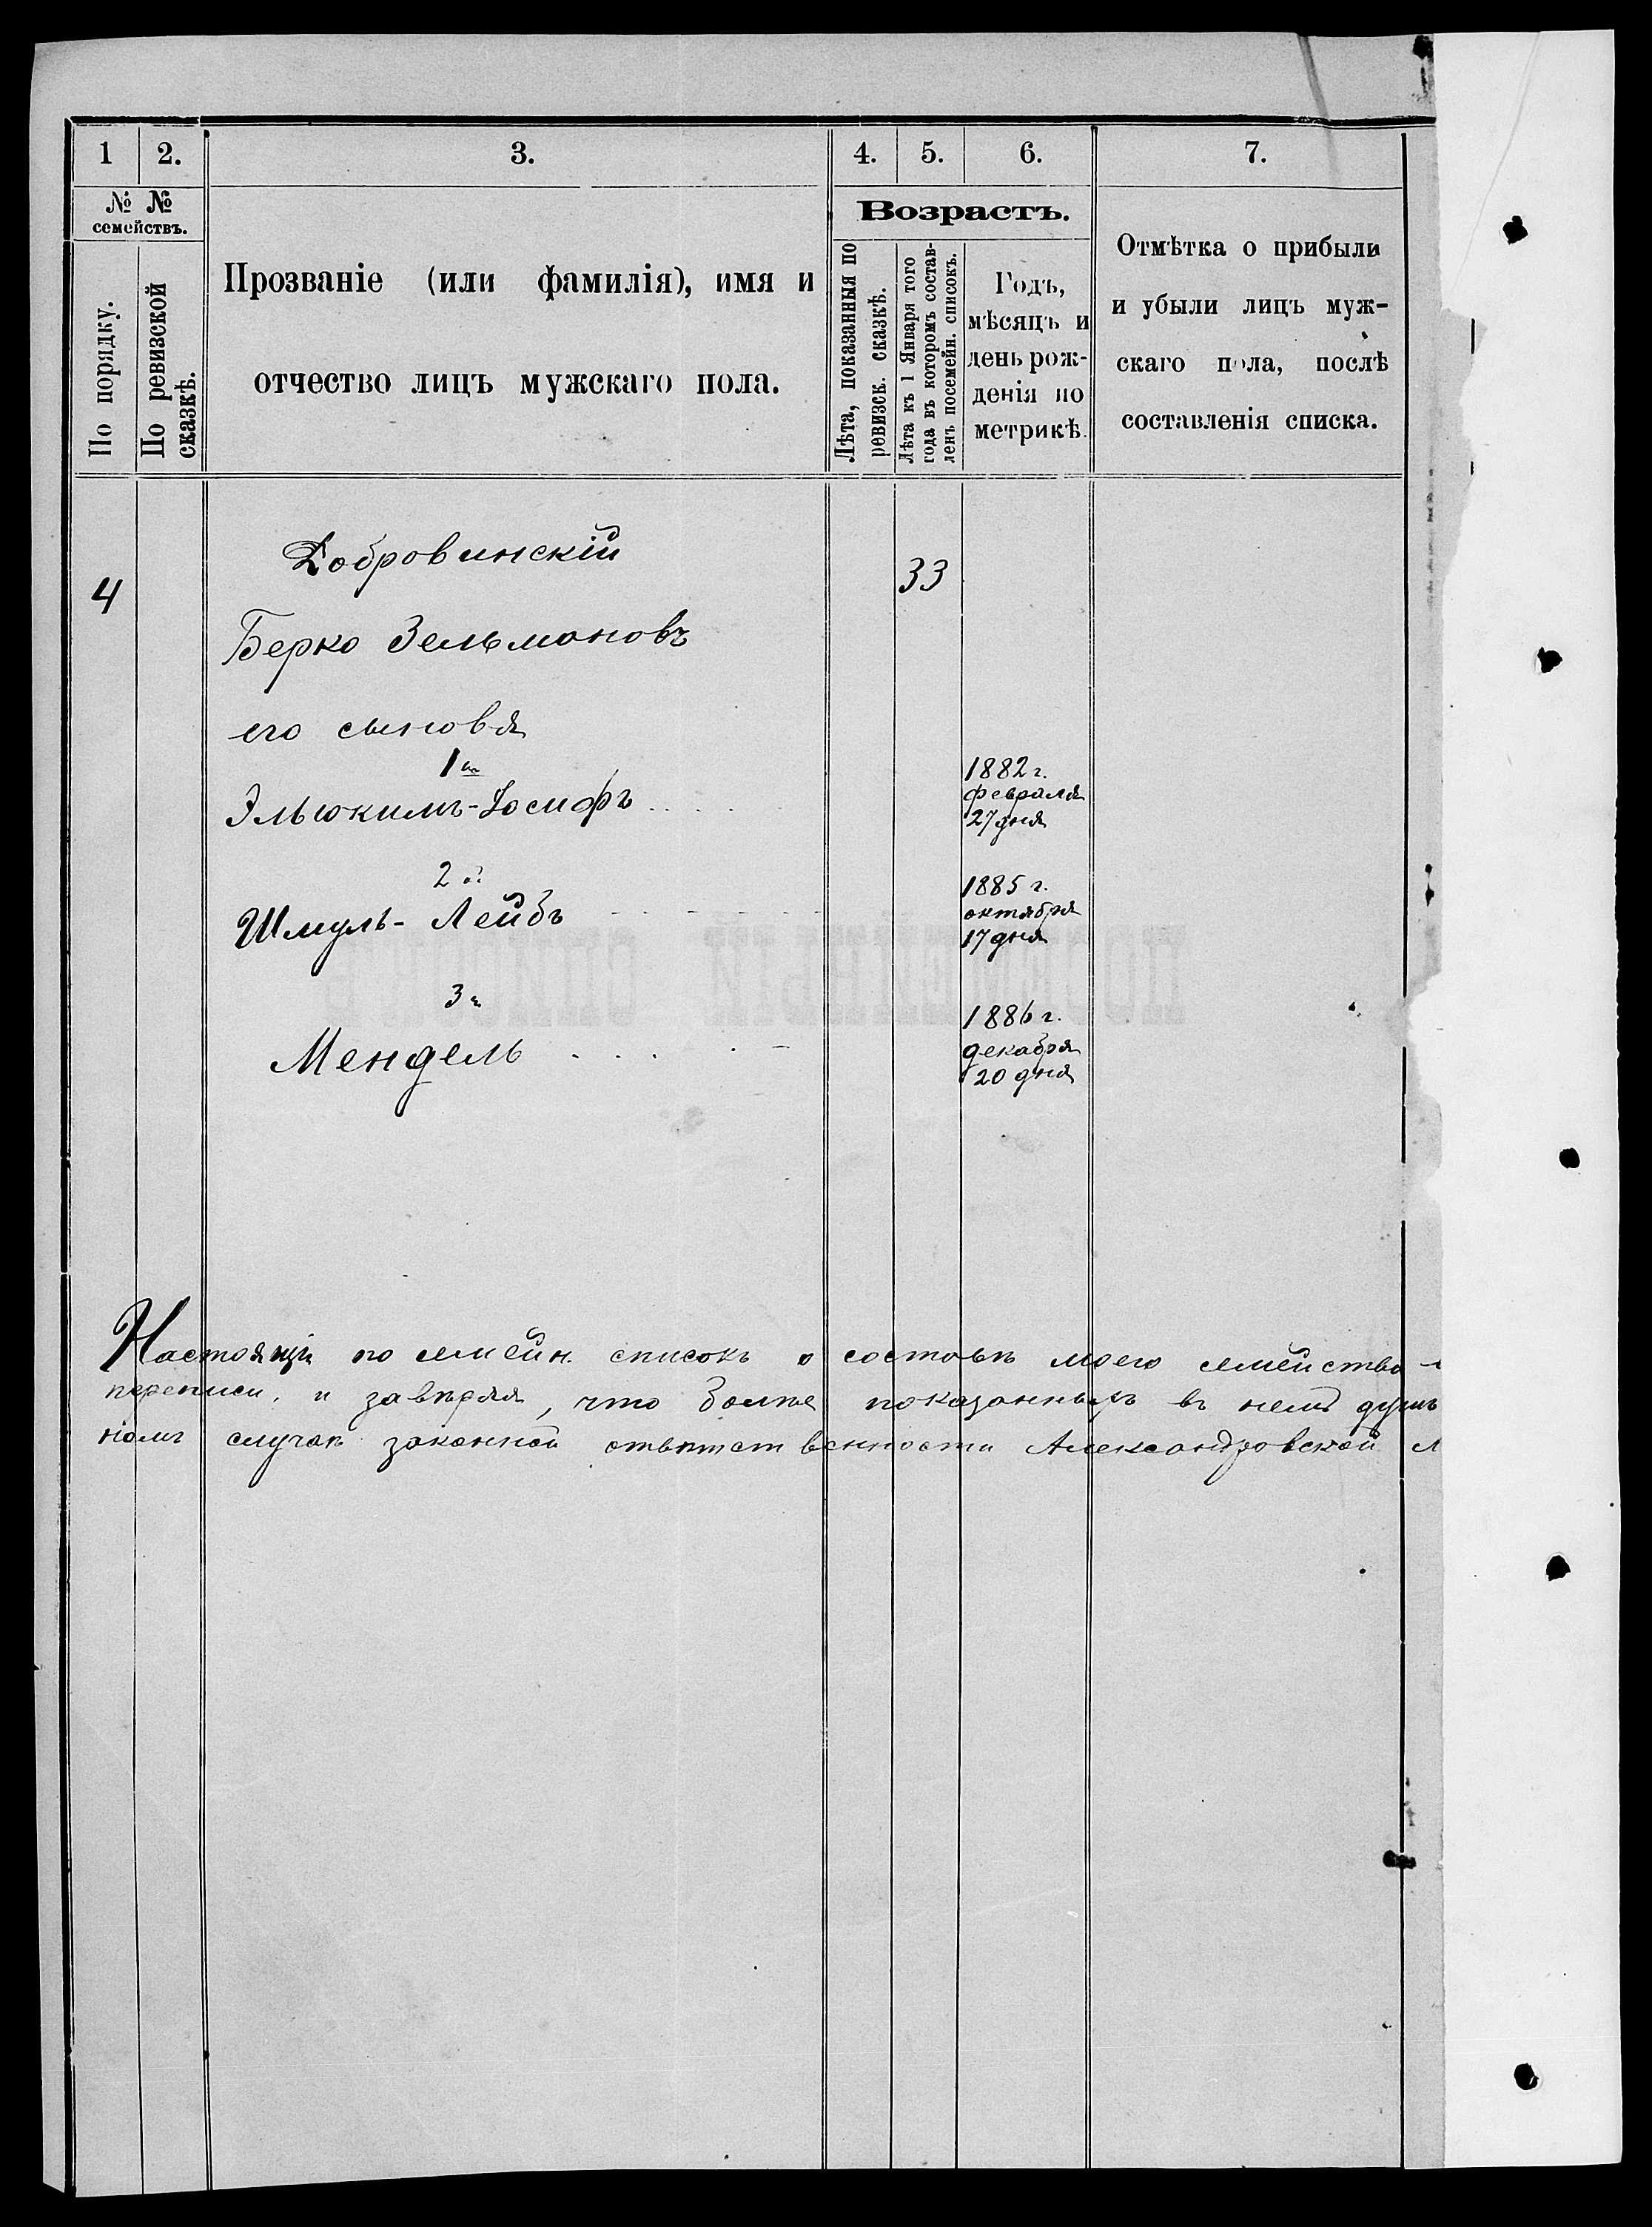 1 2. 3. 4. 5. 6. 7.
№ №
семействъ.
По порядку.
По ревизской
сказкѣ.
Прозваніе (или фамилія), имя и
отчество лицъ мужскаго пола.
Возрастъ.
Лѣта, показанныя по
ревизск. сказкѣ.
Лѣта къ 1 Января того
года въ которомъ состав-
ленъ посемейн. списокъ.
Годъ,
мѣсяцъ и
день рож-
денія по
метрикѣ.
Отмѣтка о прибыли
и убыли лицъ муж-
скаго пола, послѣ
составленія списка.
Добровинскій
4 33
Берко Зельмановъ
его сыновья
1й
Эльюкимъ-Іосифъ
1882 г.
февраля
27 дня
2й
Шмуль-Лейбъ
1885 г.
октября
17 дня
3й
Мендель
1886 г.
декабря
20 дня
ПОСЕМЕЙНЫЙ СПИСОКЪ
Настоящій посемейн. списокъ о составѣ моего семейства
переписи, и завѣряя, что болѣе показанныхъ въ немъ душъ
номъ случаѣ законной отвѣтственности Александровской